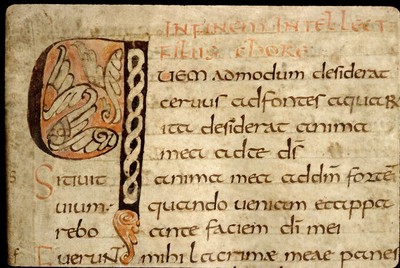 IN FINEM INTELLECT
FILIIS CHORE
QUEM admodum desiderat
ceruus ad fontes aquaR
ita desiderat anima
mea ad te d̄s
Sitiuit anima mea ad dm̄ fortē
uiuum· quando ueniam et appa
rebo ante faciem dī mei
FuerunT mihi lacrimae meae panes